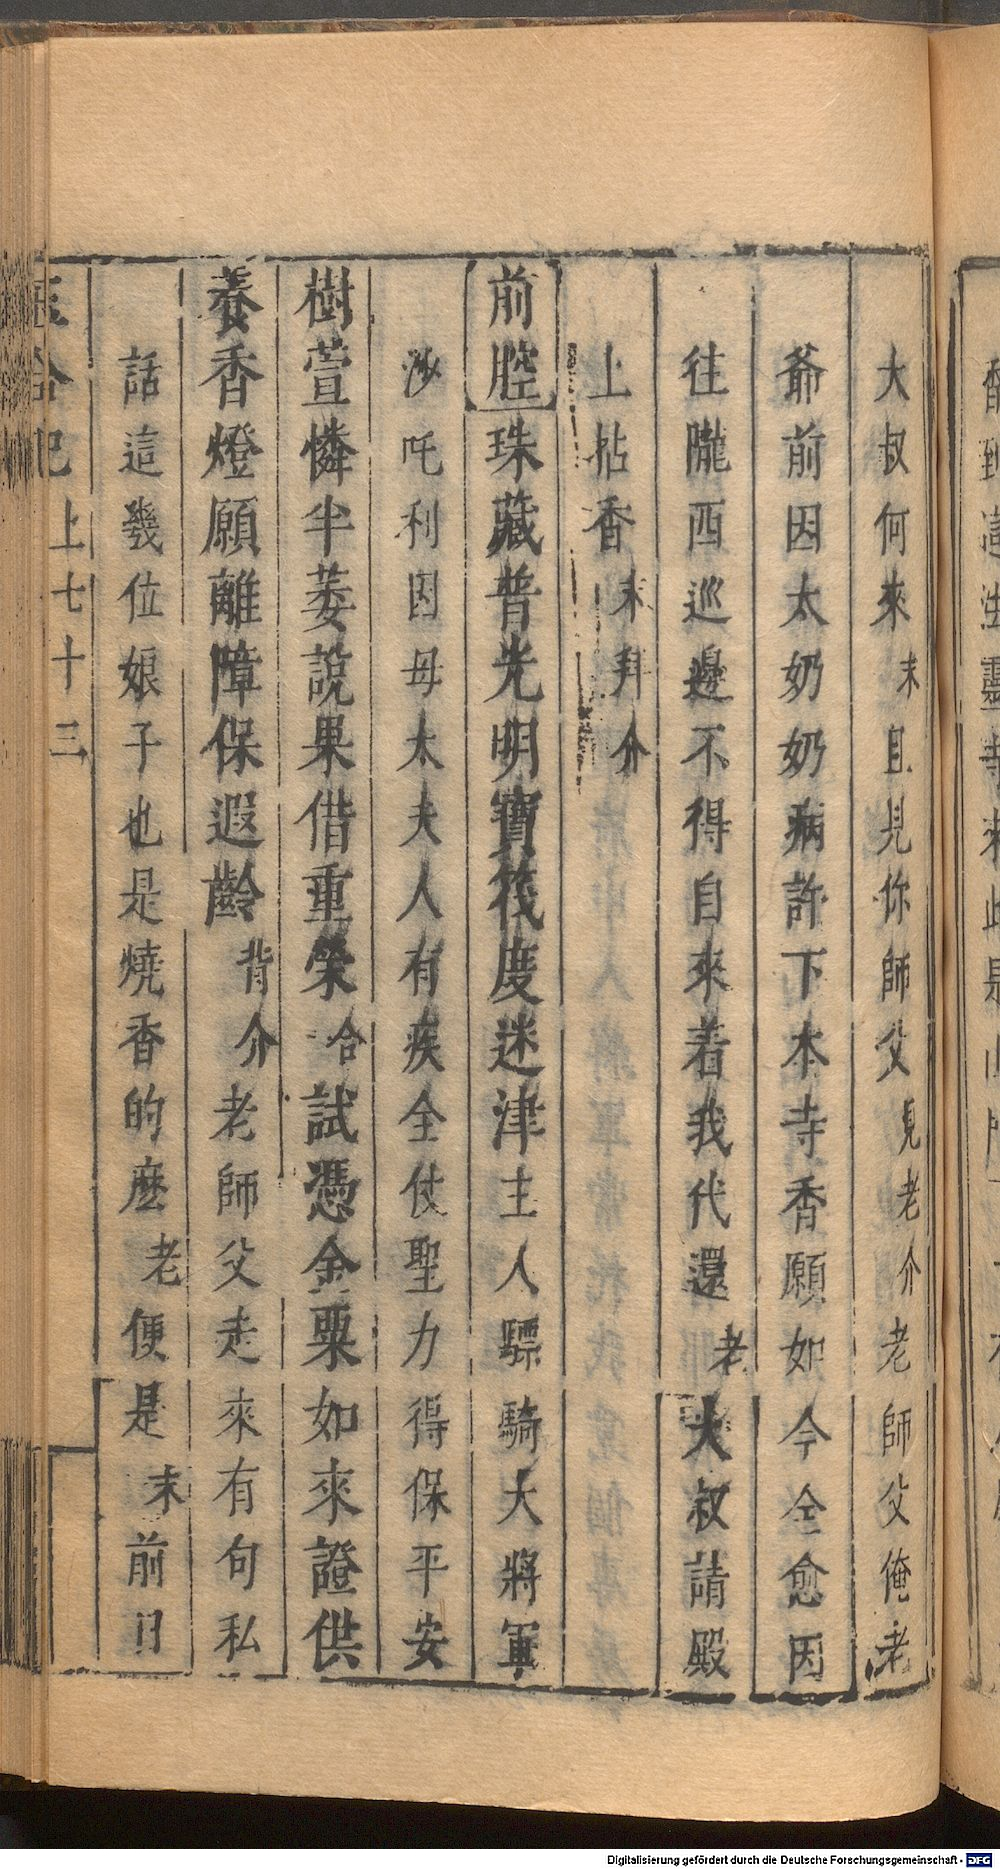 大叔何來末自見你師父見老介老師父俺老
爺前因太奶奶病許下本寺香願如今全愈因
往隴西巡邊不得自來着我代還老大叔請殿
上拈香末拜介
前腔珠藏普先明寶筏度迷津主人驃騎大將軍
沙吒利因母太夫人有疾全仗聖力得保平安
樹萱憐半萎說果借重榮合試憑金粟如來證供
養香燈願離障保遐齡背介老師父走來有句私
話這幾位娘子也是燒香的麼老便是末前日
玉合記 上七十三
Digitalisierung gefördert durch die Deutsche Forschungsgemeinschaft - DFG